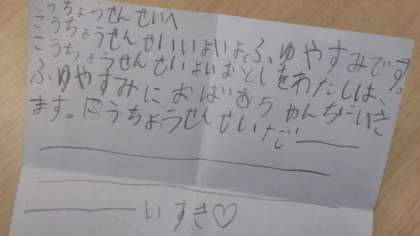 こうちょうせんせいへ
こうちょうせんせいいよいよ、ふゆやすみです。
こうちょうせんせいよいおとしをわたしは、
ふゆやすみにおばあちゃんちにいき
ます。こうちょうせんせいだ―
いすき♡